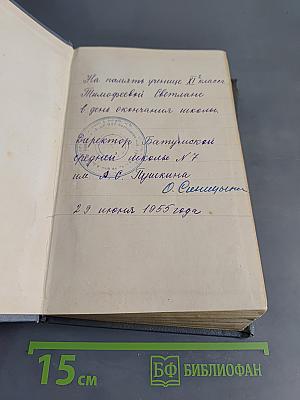 На память ученице XI класса
Тимофеевой Светлане
в день окончания школы.
Директор Батумской
средней школы №7
им. А.С. Пушкина
О. Синицына
29 июня 1955 года
15 см
БФ БИБЛИОФАН